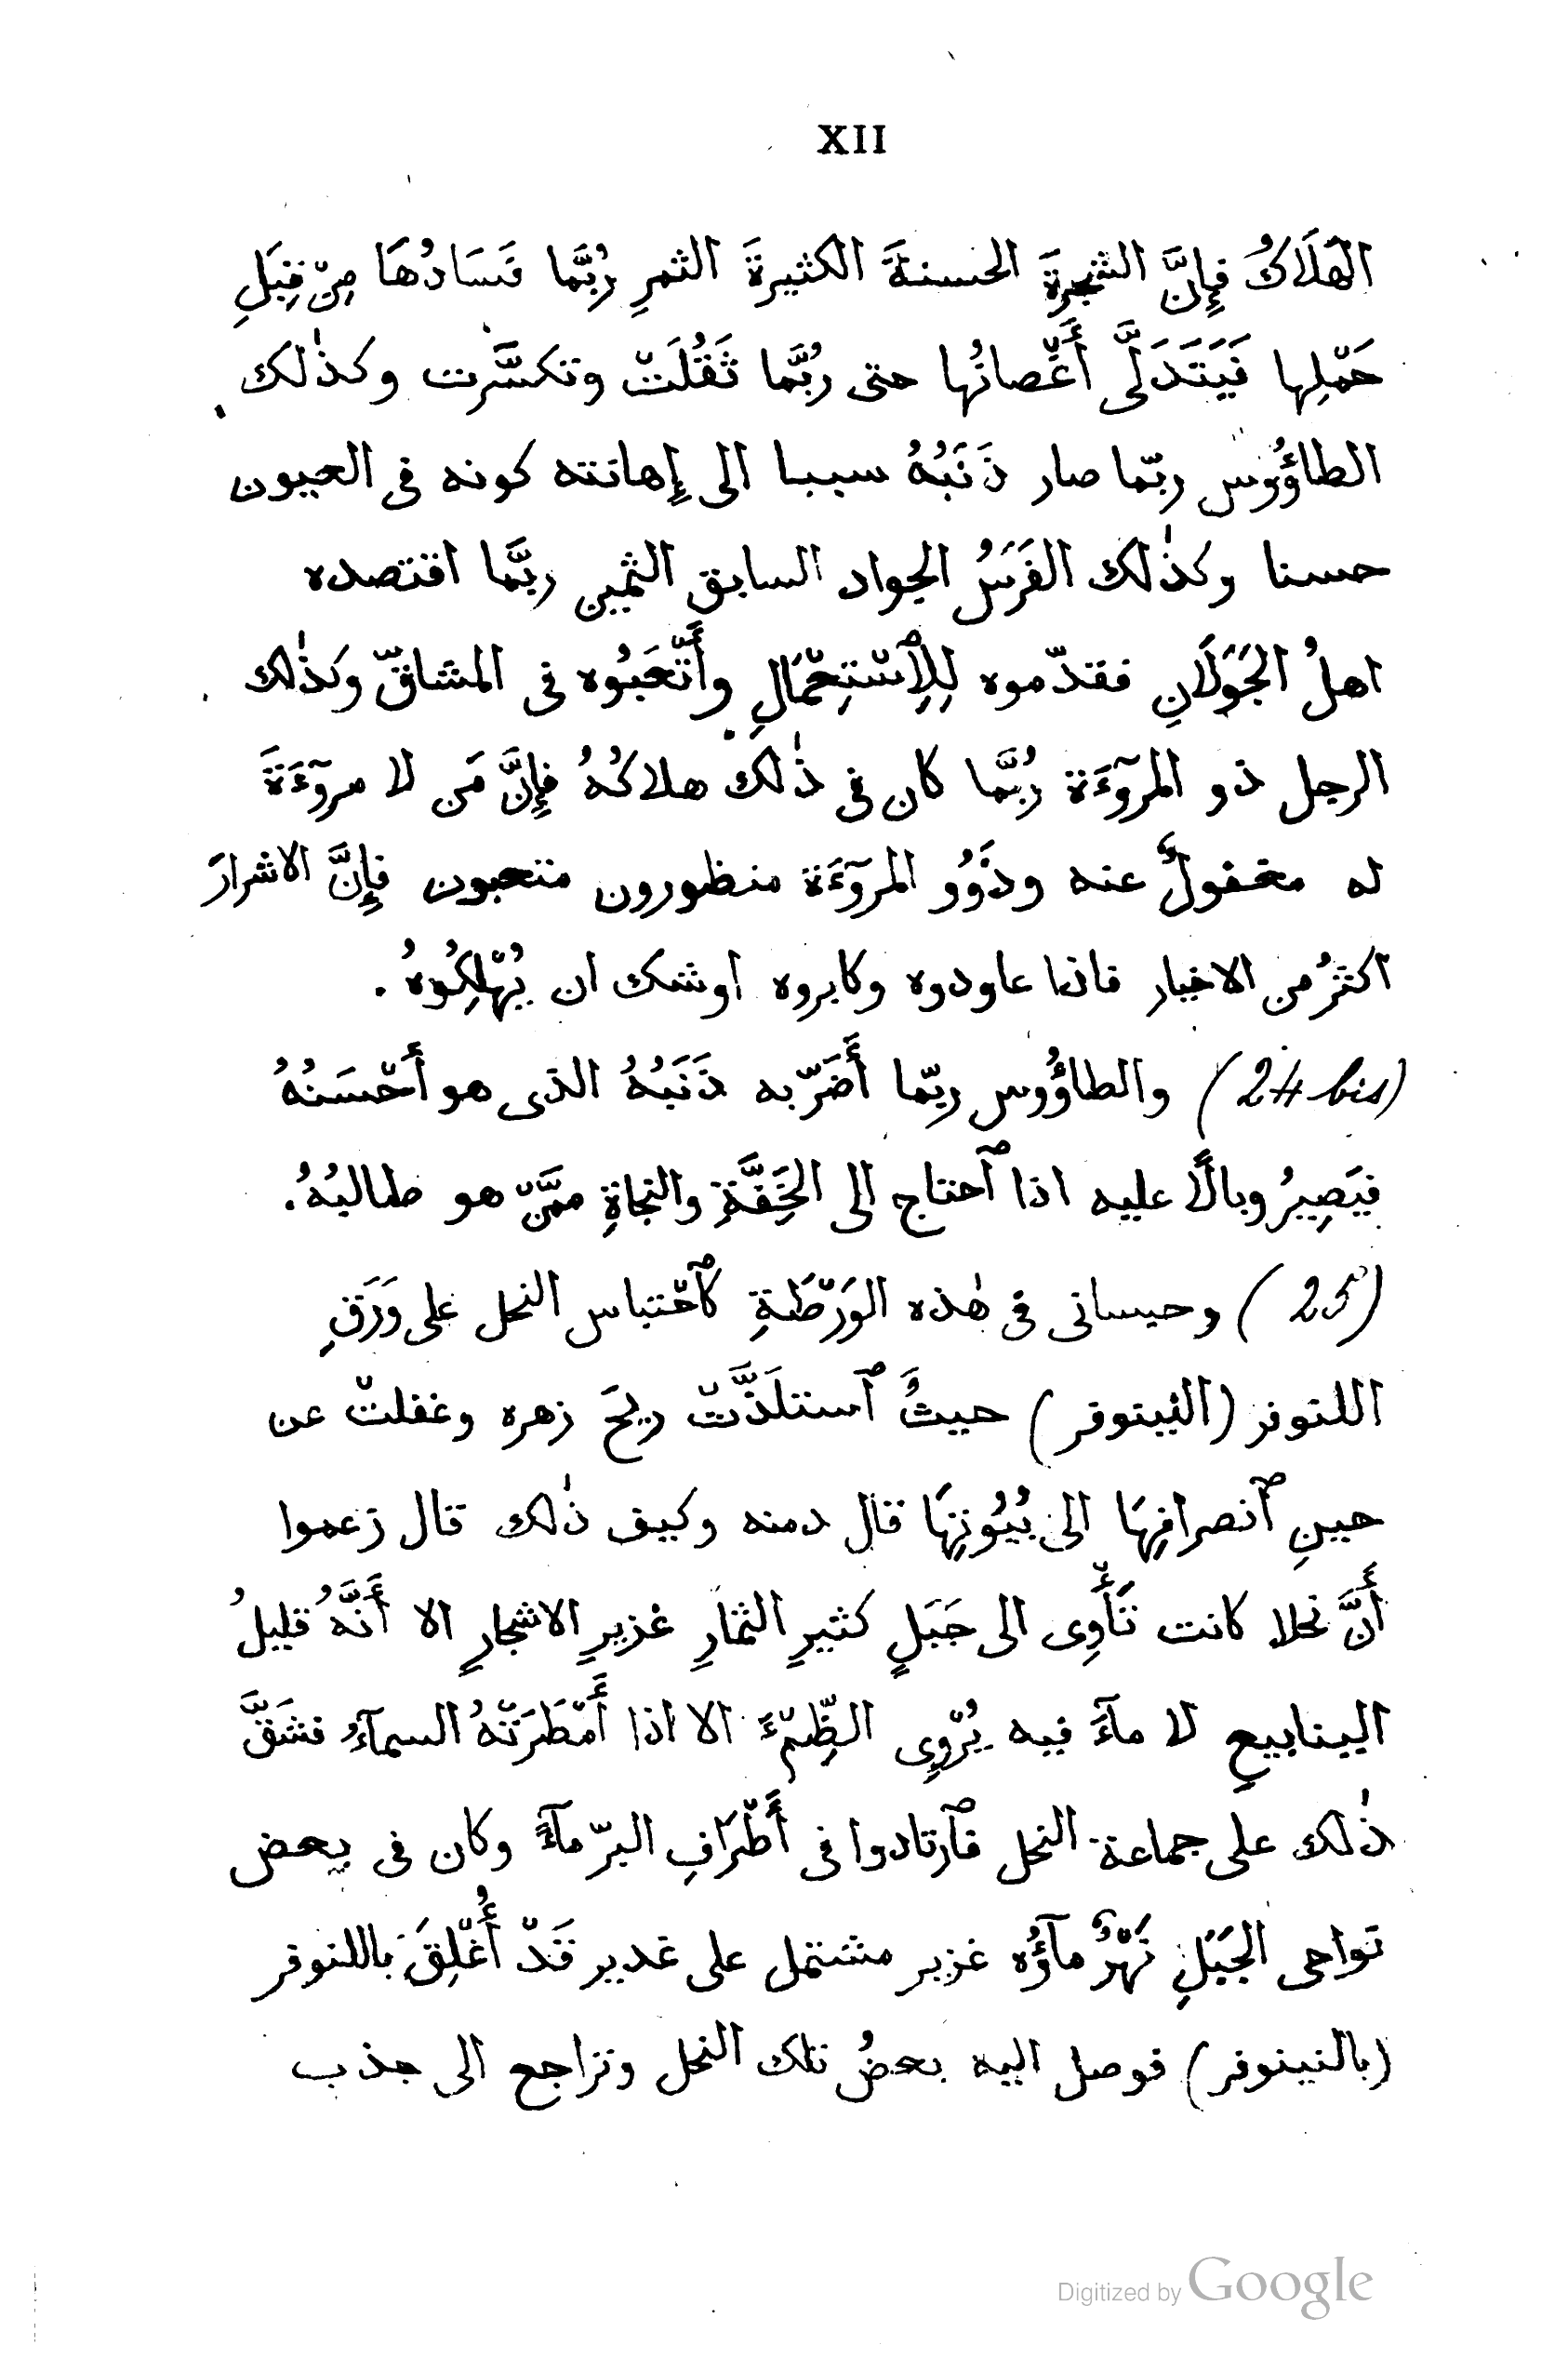 XII
الهَلَاكُ فإِنَّ الشجرةَ الحسنةَ الكثيرةَ الثمرِ رُبَّما فَسَادُهَا مِنْ قِبَلِ
حَمْلِها فَيَتَدَلَّى أَغْصانُها حتى رُبَّما ثَقُلَتْ وتكسَّرت وكذٰلك
الطاؤُوس ربّما صار ذَنَبُهُ سببا الى إِهانته كونه فى العيون
حسنا وكذٰلك الفَرَسُ الجواد السابق الثمين ربَّما اقتصده
اهلُ الجَوَلَانِ فقدّموه لِلِٱسْتِحْمَالِ وأَتْعَبُوه فى المشاقّ وكذٰلك
الرجل ذو المروٓءَة رُبَّما كان فى ذٰلك هلاكُهُ فإِنَّ مَن لا مروٓءَةَ
له مغفولٌ عنه وذَوُو المروٓءَة منظورون متعبون فإِنَّ الاشرارَ
اكثرُ من الاخيار فاذا عاودوه وكابروه اوشك ان يُهْلِكُوهُ .
(24 bis) والطاؤُوس ربّما أَضَرّ به ذَنَبُهُ الذى هو أَحْسَنُهُ
فيَصِيرُ وبالًا عليه اذا ٱحتاج الى الخِفَّةِ والنجاةِ ممَّنْ هو طالبُهُ.
(25) وحبسانى فى هٰذه الوَرْطَةِ كٱحْتباس النحل على وَرَقِ
اللنوفر (النينوفر) حيثُ ٱستلَذَّتْ ريحَ زهره وغفلتْ عن
حينِ ٱنصرافِهَا الى بُيُوتِهَا قال دمنه وكيف ذٰلك قال زعموا
أَنَّ نحلا كانت تَأْوِى الى جَبَلٍ كثيرِ الثمارِ غزيرِ الاشجارِ الا أَنَّهُ قليلُ
الينابيعِ لا مآءَ فيه يُرْوِى الظِّمْءَ الا اذا أَمْطَرَتْهُ السمآءُ فشَقَّ
ذٰلك على جماعة النحل فٱرتادوا فى أَطْرَافِ البرّ مآءً وكان فى بعض
نواحى الجَبَلِ نَهْرٌ مآؤُه غزير مشتمل على غدير قَدْ أُغْلِقَ باللنوفر
(بالنينوفر) فوصل اليه بعضُ تلك النحل وتراجع الى جذب
Digitized by Google